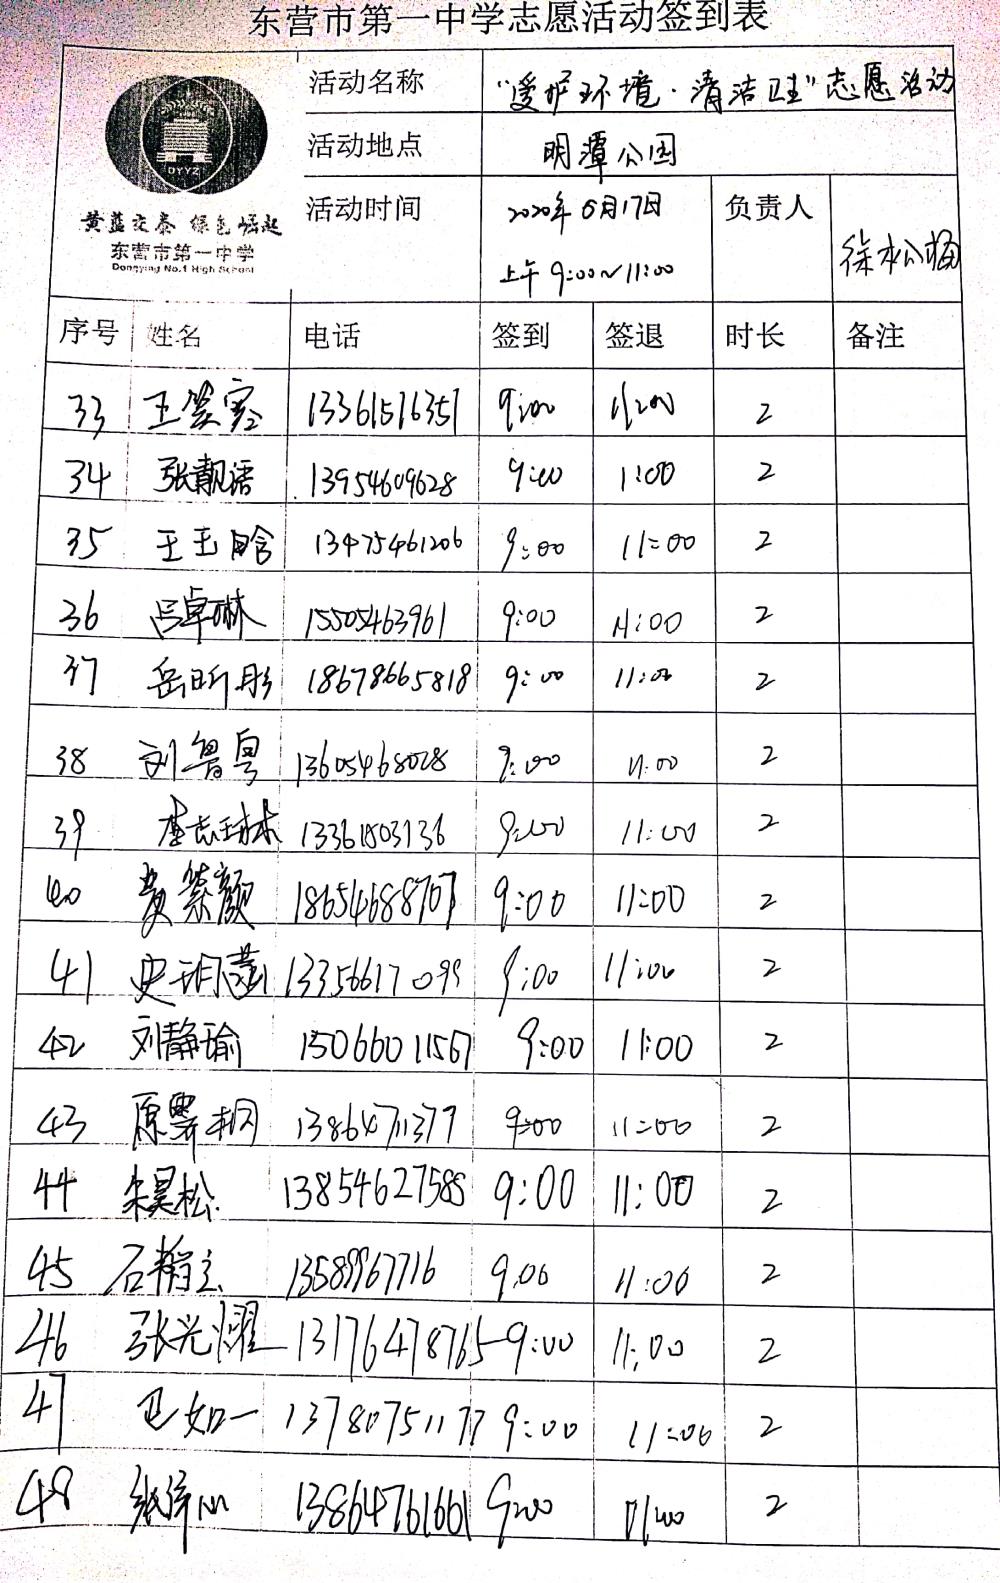 东营市第一中学志愿活动签到表
活动名称 “爱护环境·清洁卫生”志愿活动
活动地点 明潭公园
DYYZ
黄蓝交泰 绿色崛起
东营市第一中学
Dongying No.1 High School
活动时间 2020年6月17日 上午 9:00~11:00 负责人 徐松梅
序号 姓名 电话 签到 签退 时长 备注
33 王 13361516351 9:00 11:00 2
34 张靓语 13954609628 9:00 11:00 2
35 王玉晗 13475461206 9:00 11:00 2
36 吕卓琳 15505463961 9:00 11:00 2
37 岳昕彤 18678665818 9:00 11:00 2
38 刘鲁粤 13605468028 9:00 11:00 2
39 李志琳 13361503136 9:00 11:00 2
40 颜 18654688767 9:00 11:00 2
41 史 13356617099 9:00 11:00 2
42 刘静瑜 15066011567 9:00 11:00 2
43 原霁桐 13864711377 9:00 11:00 2
44 宋昊松 13854627588 9:00 11:00 2
45 石翰立 13589967716 9:00 11:00 2
46 张光耀 13176478765 9:00 11:00 2
47 巴如一 13780751177 9:00 11:00 2
48 13864761661 9:00 11:00 2